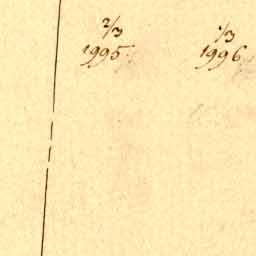 2/3 1/3
1995 1996